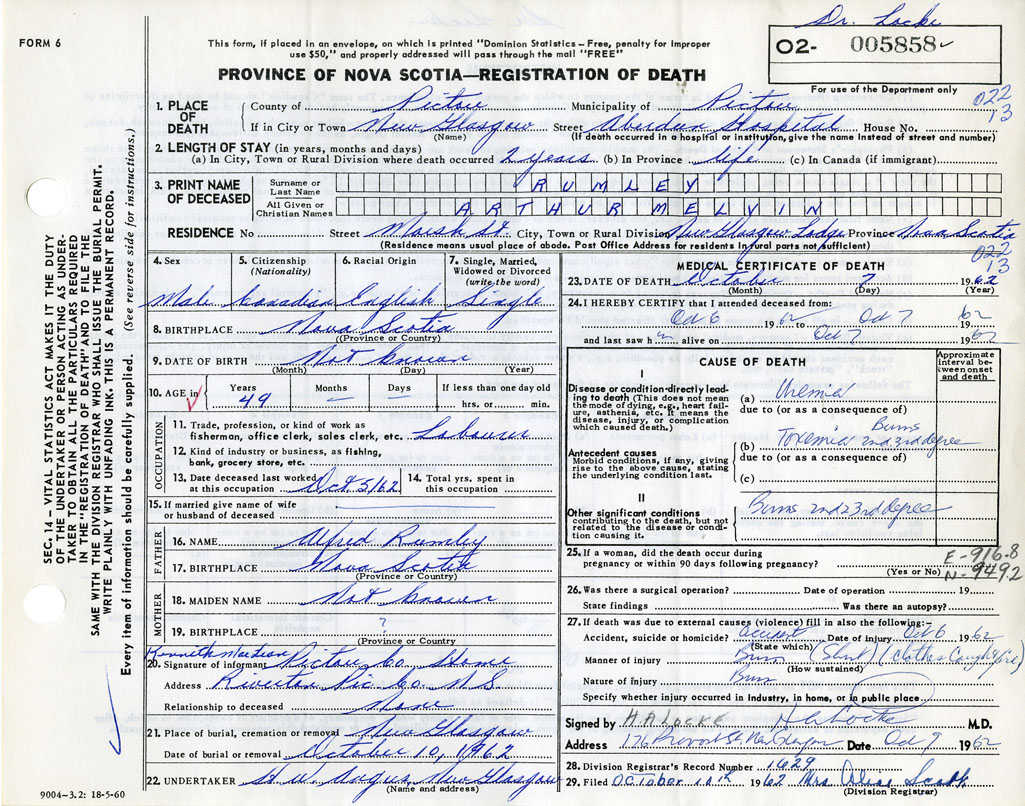 Dr. Locke
FORM 6
This form, if placed in an envelope, on which is printed "Dominion Statistics – Free, penalty for improper
use $50," and properly addressed will pass through the mail "FREE"
02- 005858
PROVINCE OF NOVA SCOTIA—REGISTRATION OF DEATH
For use of the Department only
022
13
1. PLACE OF DEATH { County of Pictou Municipality of Pictou
If in City or Town New Glasgow Street Aberdeen Hospital House No.
(Name) (If death occurred in a hospital or institution, give the name instead of street and number)
2. LENGTH OF STAY (in years, months and days)
(a) In City, Town or Rural Division where death occurred 2 years (b) In Province life (c) In Canada (if immigrant)
3. PRINT NAME OF DECEASED
Surname or Last Name RUMLEY
All Given or Christian Names ARTHUR MELVIN
RESIDENCE No Street Marsh St. City, Town or Rural Division New Glasgow Lodge Province Nova Scotia
(Residence means usual place of abode. Post Office Address for residents in rural parts not sufficient)
022
13
SEC. 14 – VITAL STATISTICS ACT MAKES IT THE DUTY
OF THE UNDERTAKER OR PERSON ACTING AS UNDER-
TAKER TO OBTAIN ALL THE PARTICULARS REQUIRED
IN THE "REGISTRATION OF DEATH" AND FILE THE
SAME WITH THE DIVISION REGISTRAR WHO SHALL ISSUE THE BURIAL PERMIT.
WRITE PLAINLY WITH UNFADING INK. THIS IS A PERMANENT RECORD.
Every item of information should be carefully supplied. (See reverse side for instructions.)
4. Sex
Male
5. Citizenship
(Nationality)
Canadian
6. Racial Origin
English
7. Single, Married,
Widowed or Divorced
(write the word)
Single
8. BIRTHPLACE Nova Scotia
(Province or Country)
9. DATE OF BIRTH Not known
(Month) (Day) (Year)
10. AGE in { Years Months Days If less than one day old
49 — — hrs. or min.
OCCUPATION
11. Trade, profession, or kind of work as
fisherman, office clerk, sales clerk, etc. Labourer
12. Kind of industry or business, as fishing,
bank, grocery store, etc.
13. Date deceased last worked
at this occupation Oct 5/62
14. Total yrs. spent in
this occupation
15. If married give name of wife
or husband of deceased
FATHER
16. NAME Alfred Rumley
17. BIRTHPLACE Nova Scotia
(Province or Country)
MOTHER
18. MAIDEN NAME Not known
19. BIRTHPLACE ?
(Province or Country)
Kenneth MacLean
20. Signature of informant Pictou Co. Home
Address Riverton Pic Co. N.S.
Relationship to deceased None
21. Place of burial, cremation or removal New Glasgow
Date of burial or removal October 10, 1962
22. UNDERTAKER H. W. Angus, New Glasgow
(Name and address)
9004–3.2: 18-5-60
MEDICAL CERTIFICATE OF DEATH
23. DATE OF DEATH October 7 1962
(Month) (Day) (Year)
24. I HEREBY CERTIFY that I attended deceased from:
Oct 6 1962 to Oct 7 1962
and last saw him alive on Oct 7 1962
CAUSE OF DEATH
Approximate
interval be-
tween onset
and death
I
Disease or condition directly lead-
ing to death (This does not mean
the mode of dying, e.g., heart fail-
ure, asthenia, etc. It means the
disease, injury, or complication
which caused death.)
(a) Uremia
due to (or as a consequence of)
Burns
(b) Toxemia 2nd 3rd degree
due to (or as a consequence of)
(c)
Antecedent causes
Morbid conditions, if any, giving
rise to the above cause, stating
the underlying condition last.
II
Other significant conditions
contributing to the death, but not
related to the disease or condi-
tion causing it.
Burns 2nd & 3rd degree
25. If a woman, did the death occur during
pregnancy or within 90 days following pregnancy?
(Yes or No)
E-916.8
N-949.2
26. Was there a surgical operation? Date of operation 19
State findings Was there an autopsy?
27. If death was due to external causes (violence) fill in also the following:–
Accident, suicide or homicide? Accident Date of injury Oct 6 1962
(State which)
Manner of injury Burn (Clothes Caught fire)
(How sustained)
Nature of injury Burn
Specify whether injury occurred in industry, in home, or in public place.
Signed by H.A LOCKE H A Locke M.D.
Address 176 Provost St. New Glasgow Date Oct 9 1962
28. Division Registrar's Record Number 1629
29. Filed October 10th 1962 Mrs. Scott
(Division Registrar)